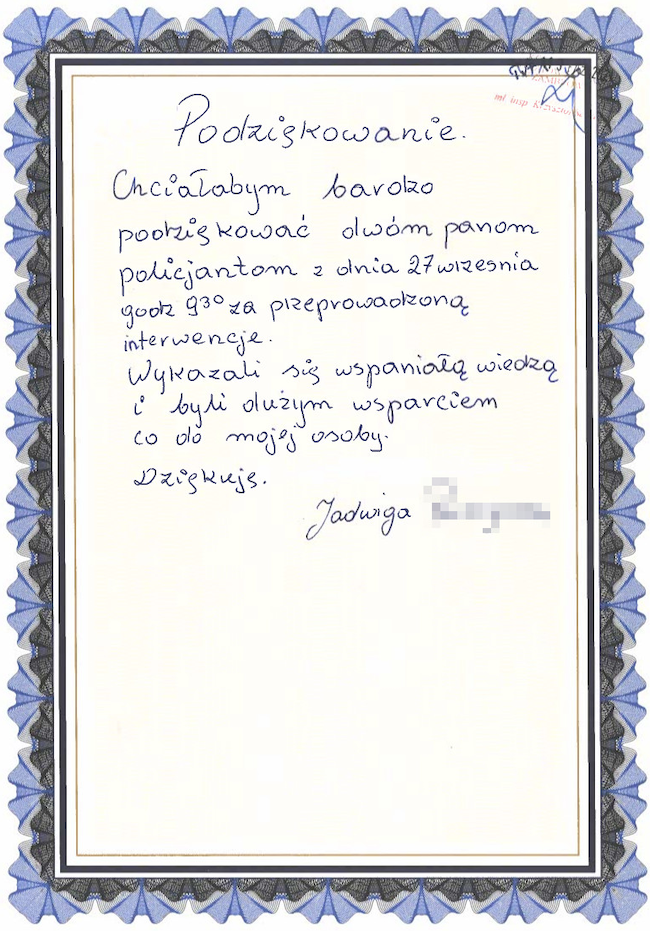 mł. insp. Krzysztof
Podziękowanie.
Chciałabym bardzo
podziękować dwóm panom
policjantom z dnia 27 wrzesnia
godz 9³⁰ za przeprowadzoną
interwencje.
Wykazali się wspaniałą wiedzą
i byli dużym wsparciem
co do mojej osoby.
Dziękuję.
Jadwiga